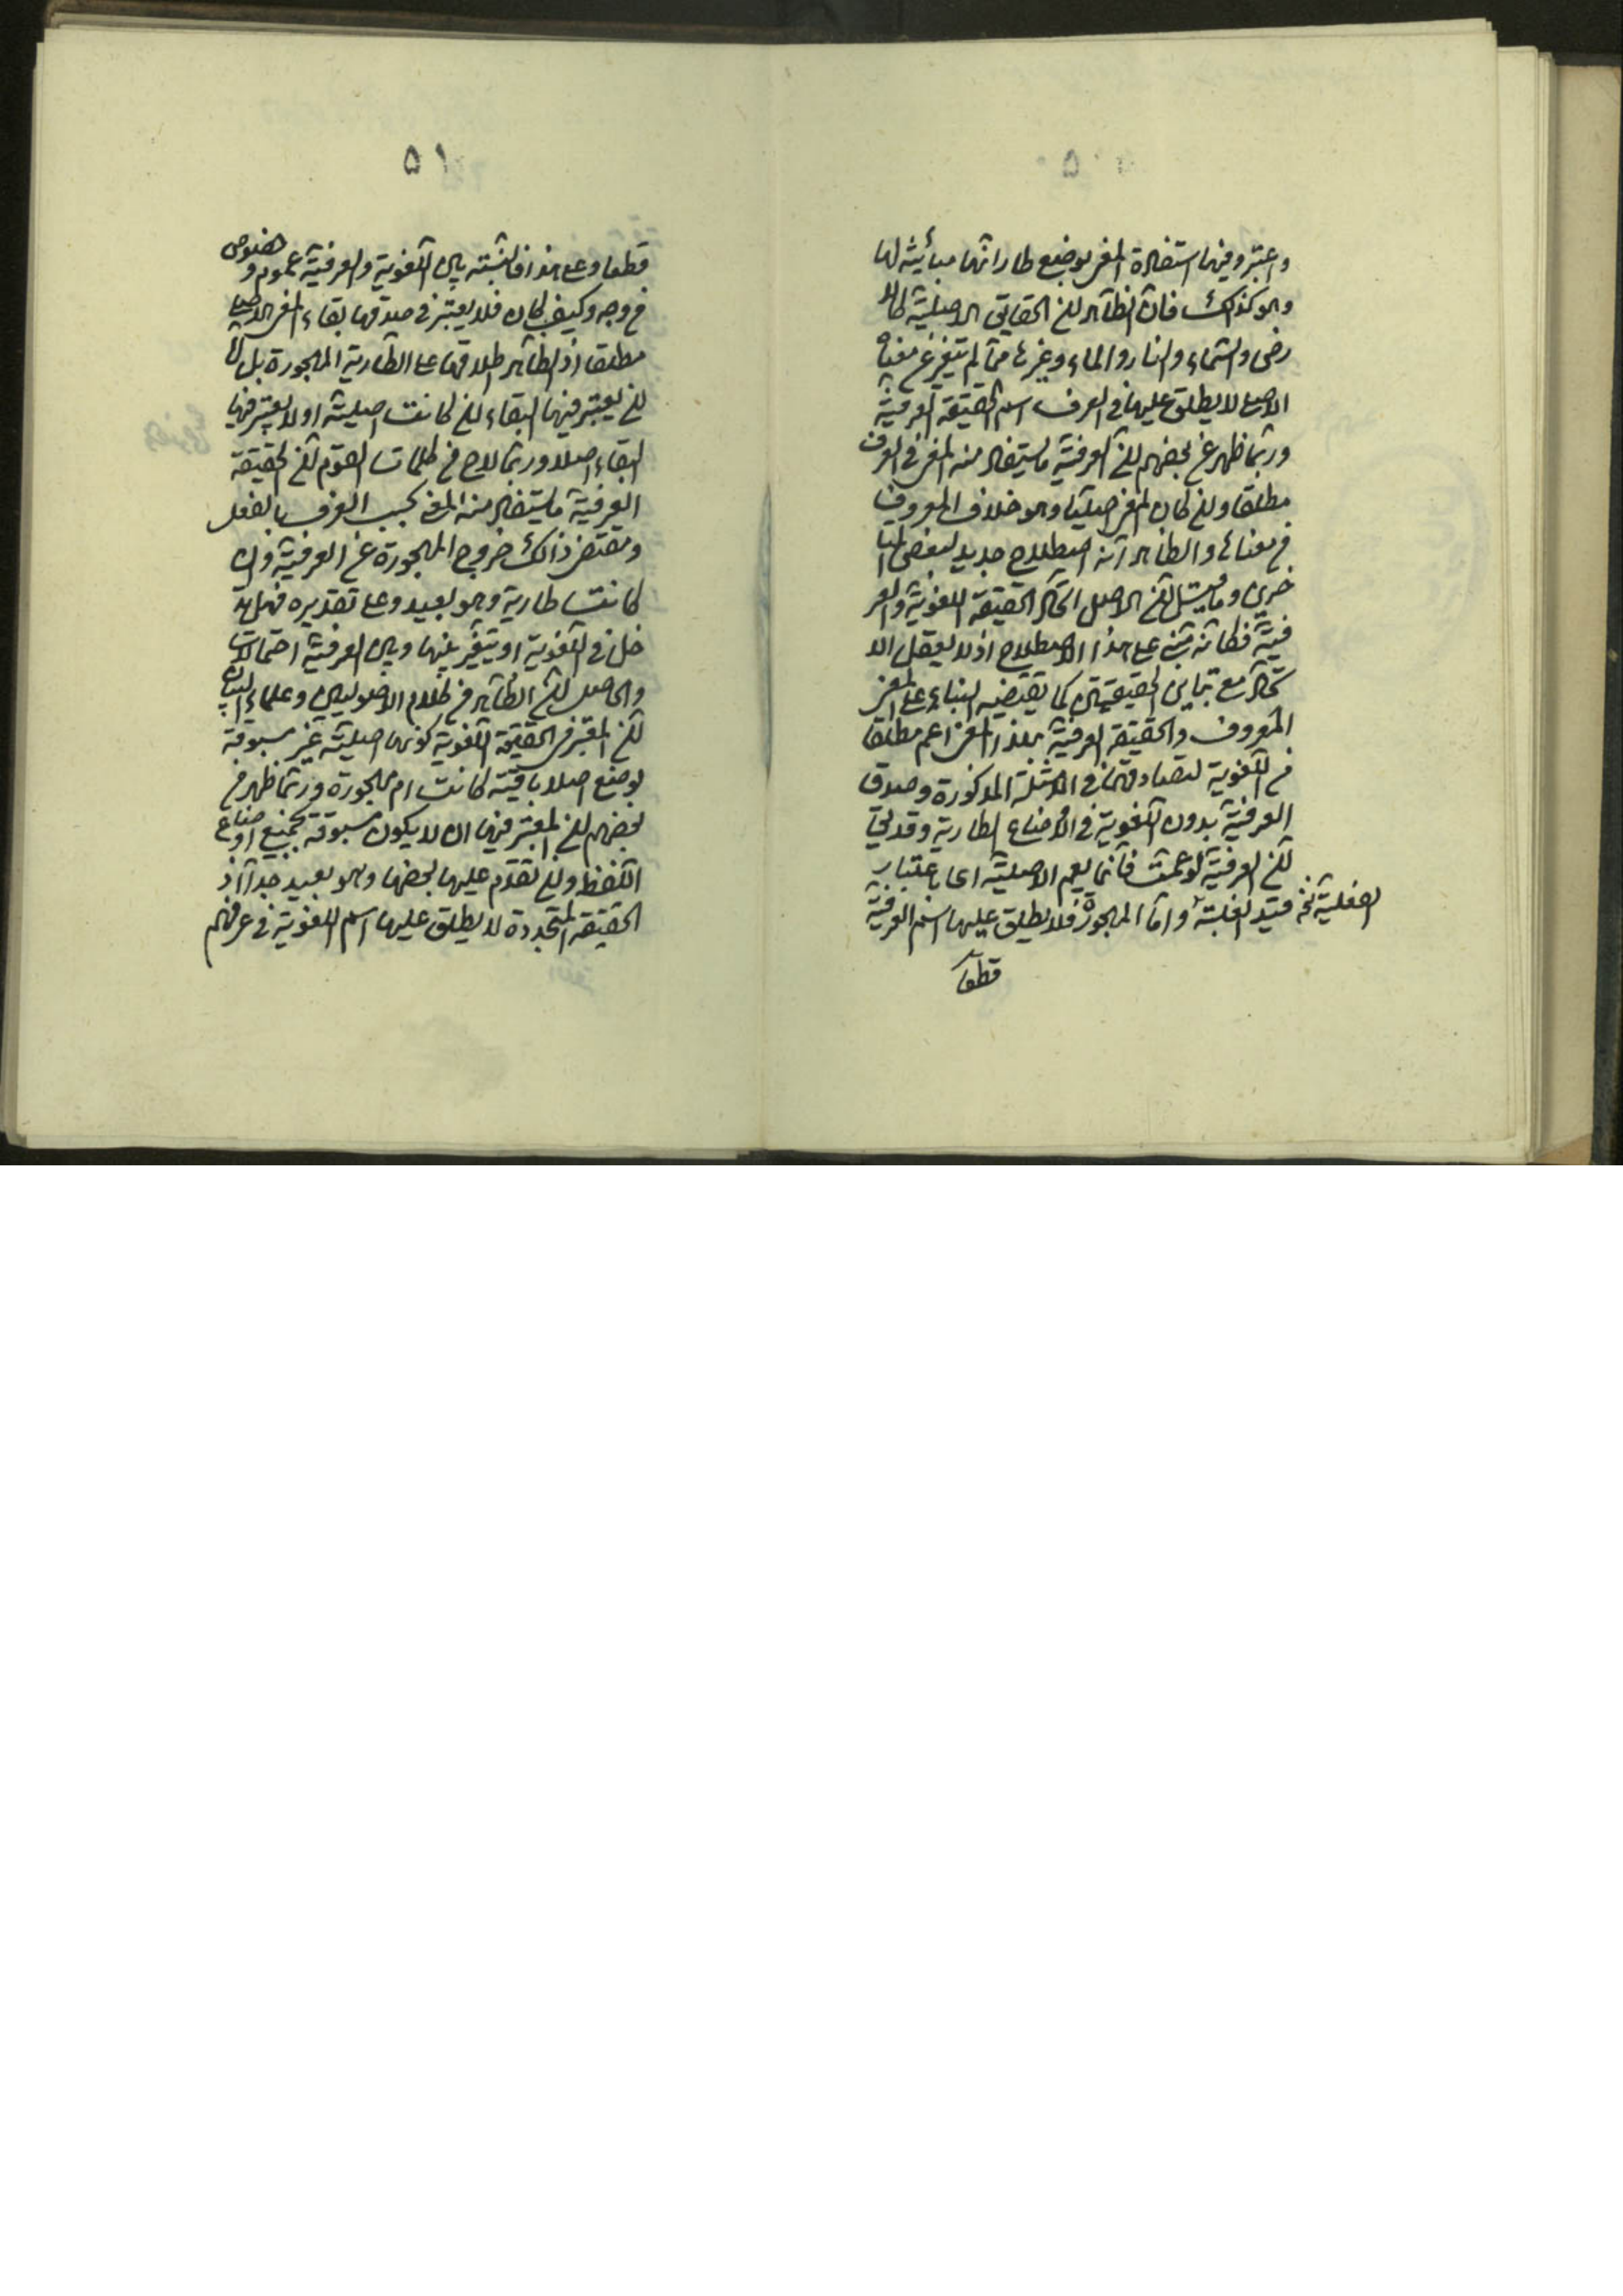 ۵۰
واعتبروفيها استفادة المعنى بوضع طار انها مباينة لها
وهو كذلك فان الظاهر ان الحقايق الاصلية كالا
رض والسماء والنار والماء وغيرها مما لم يتغير عن معناه
الاصلي لا يطلق عليها في العرف اسم الحقيقة العرفية
وربما ظهر عن بعضهم ان العرفية ما يستفاد منه المعنى في العرف
مطلقا وان كان المعنى اصليا وهو خلاف المعروف
في معناها والظاهر انه اصطلاح جديد لبعض المتا
خرين وما قيل ان الاصل اتحاد الحقيقة اللغوية والعر
فية فكانه مبني على هذا الاصطلاح اذ لا يعقل الا
تحاد مع تباين الحقيقتين كما يقتضيه البناء على المعنى
المعروف والحقيقة العرفية بهذا المعنى اعم مطلقا
من اللغوية لتصادقهما في الامثلة المذكورة وصدق
العرفية بدون اللغوية في الاوضاع الطارية وقد يق
ان العرفية لو عمت فانما يعم الاصلية اي باعتبار
الفعلية نخ قيد الغلبة واما المهجورة فلا يطلق عليها اسم العرفية
قطعا
۵۱
قطعا وعلى هذا فالنسبة بين اللغوية والعرفية عموم و خصوص
من وجه وكيف كان فلا يعتبر في صدقها بقاء المعنى الاصلي
مطلقا اذ الظاهر اطلاقها على الطارية المهجورة بل
ان يعتبر فيها البقاء ان كانت اصلية او لا يعتبر فيها
البقاء اصلا وربما لاح من كلمات القوم ان الحقيقة
العرفية ما يستفاد منه المعنى بحسب العرف بالفعل
ومقتضى ذلك خروج المهجورة عن العرفية وان
كانت طارية وهو بعيد وعلى تقديره فهل يد
خل في اللغوية او يتغير بينها وبين العرفية احتمالات
والحاصل ان الظاهر من كلام الاصوليين وعلماء البيان
ان المعتبر في الحقيقة اللغوية كونها اصلية غير مسبوقة
بوضع اصلا باقية كانت ام مهجورة وربما ظهر من
بعضهم ان المعتبر فيها ان لا يكون مسبوقة بجميع اوضاع
اللفظ وان تقدم عليها بعضها وهو بعيد جدا اذ
الحقيقة المتجددة لا يطلق عليها اسم اللغوية في عرفهم